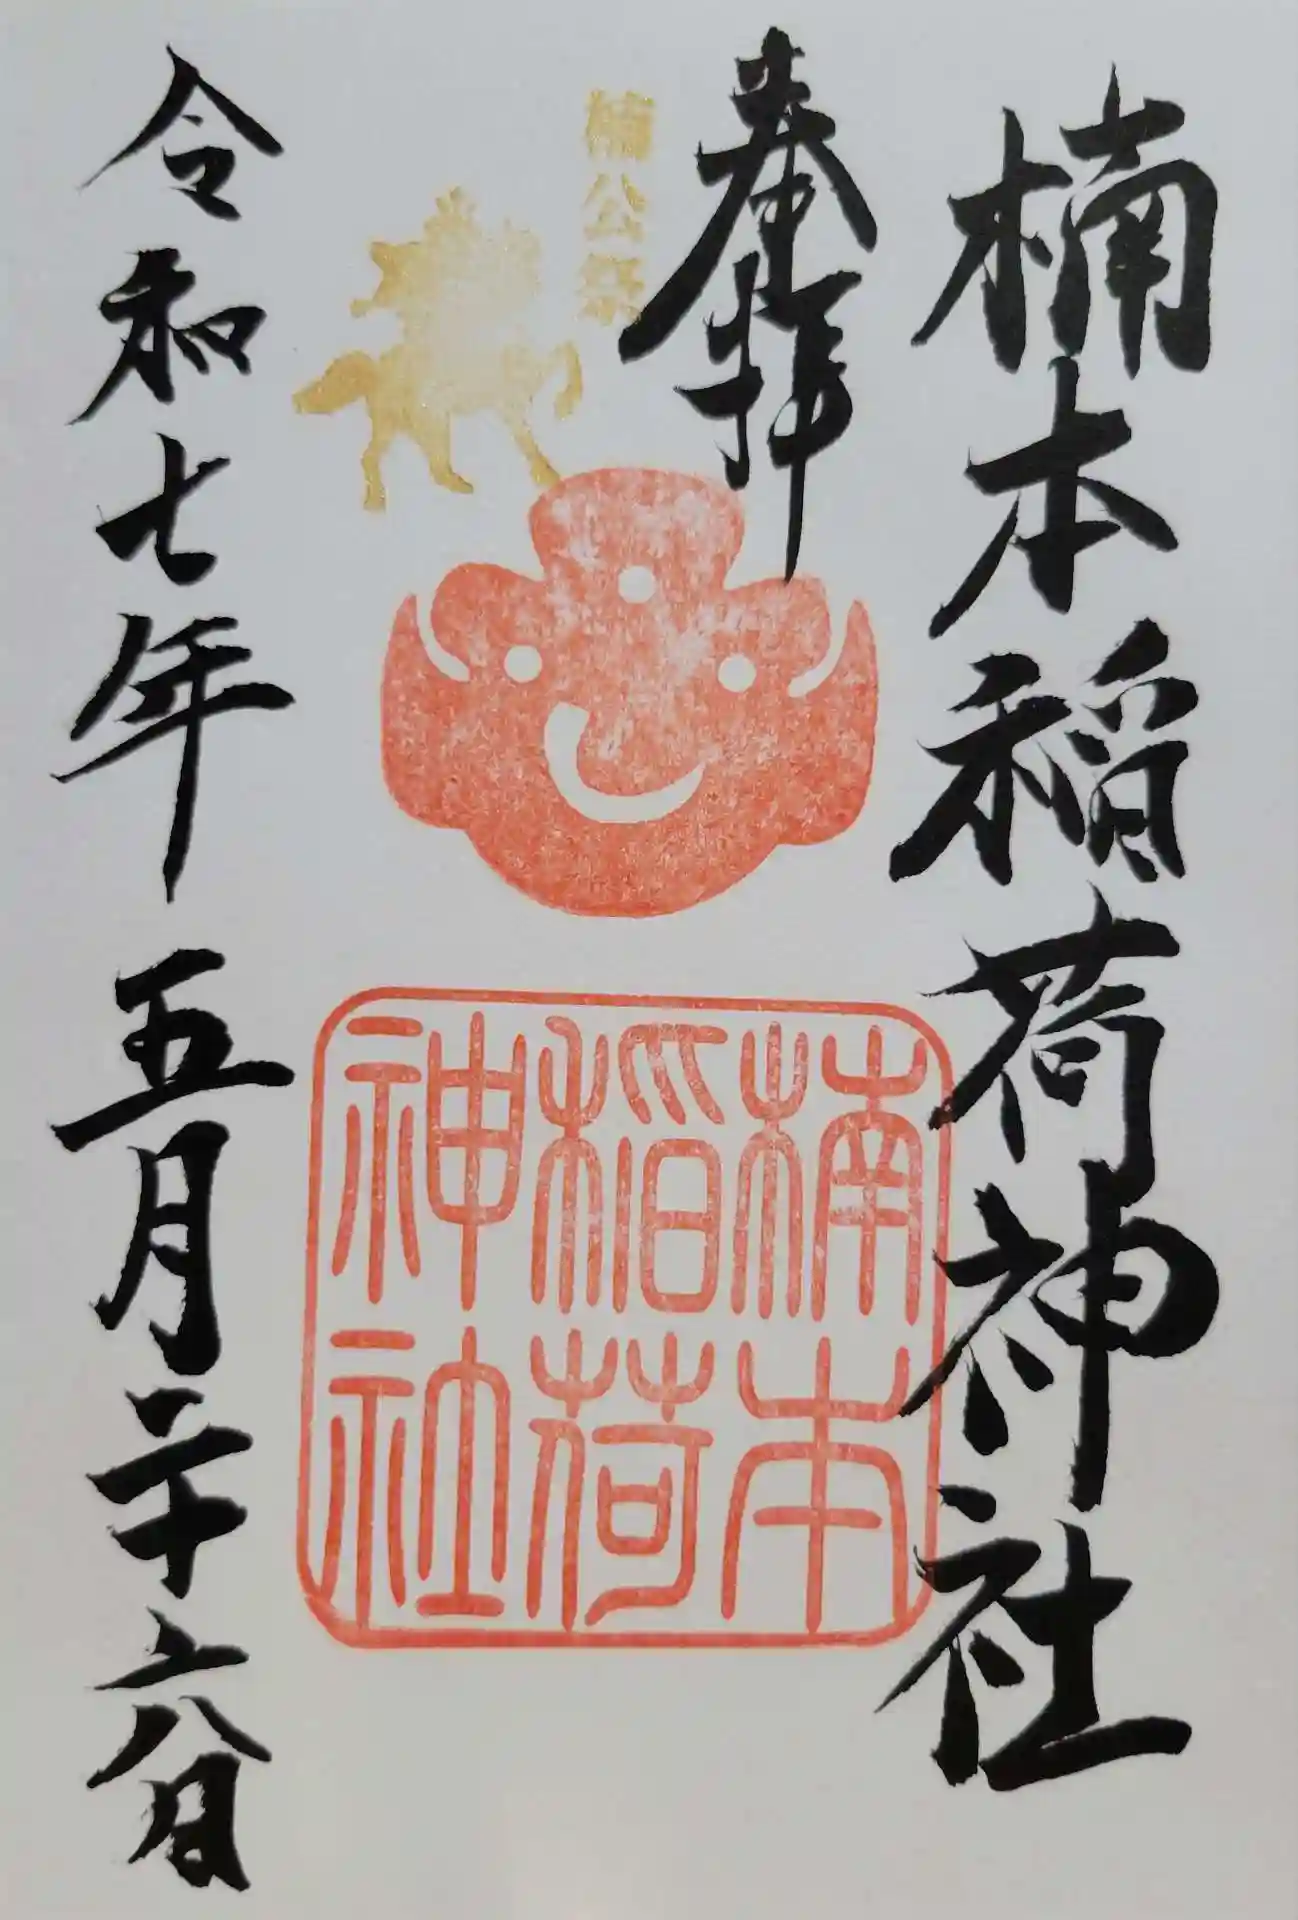 楠本稲荷神社
奉拝
楠公祭
楠本
稲荷
神社
令和七年五月二十六日